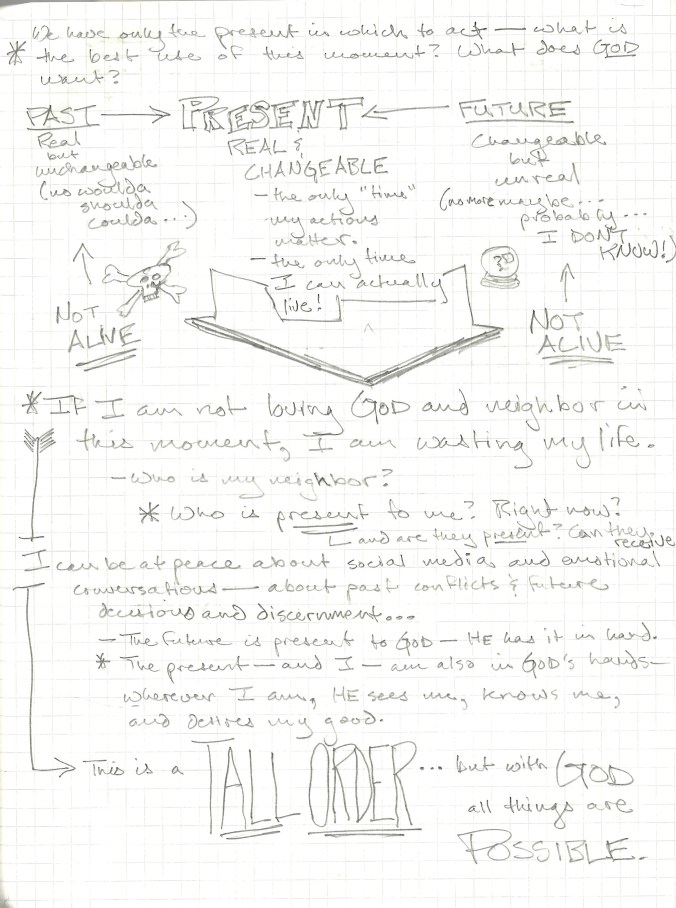 We have only the present in which to act — what is
* the best use of this moment? What does GOD
want?
PAST → PRESENT ← FUTURE
Real
but
unchangeable
(no woulda
shoulda
coulda...)
NOT
ALIVE
REAL &
CHANGEABLE
- the only "time"
my actions
matter.
- the only time
I can actually
live!
Changeable
but
unreal
(no more maybe...
probably...
I DON'T
KNOW!)
NOT
ALIVE
* IF I am not loving GOD and neighbor in
this moment, I am wasting my life.
- Who is my neighbor?
* Who is present to me? Right now?
and are they present? Can they
receive
I can be at peace about social media and emotional
conversations — about past conflicts & future
decisions and discernment...
- The future is present to GOD — HE has it in hand.
* The present — and I — am also in GOD'S hands —
wherever I am, HE sees me, knows me,
and desires my good.
→ This is a TALL ORDER... but with GOD
all things are
POSSIBLE.